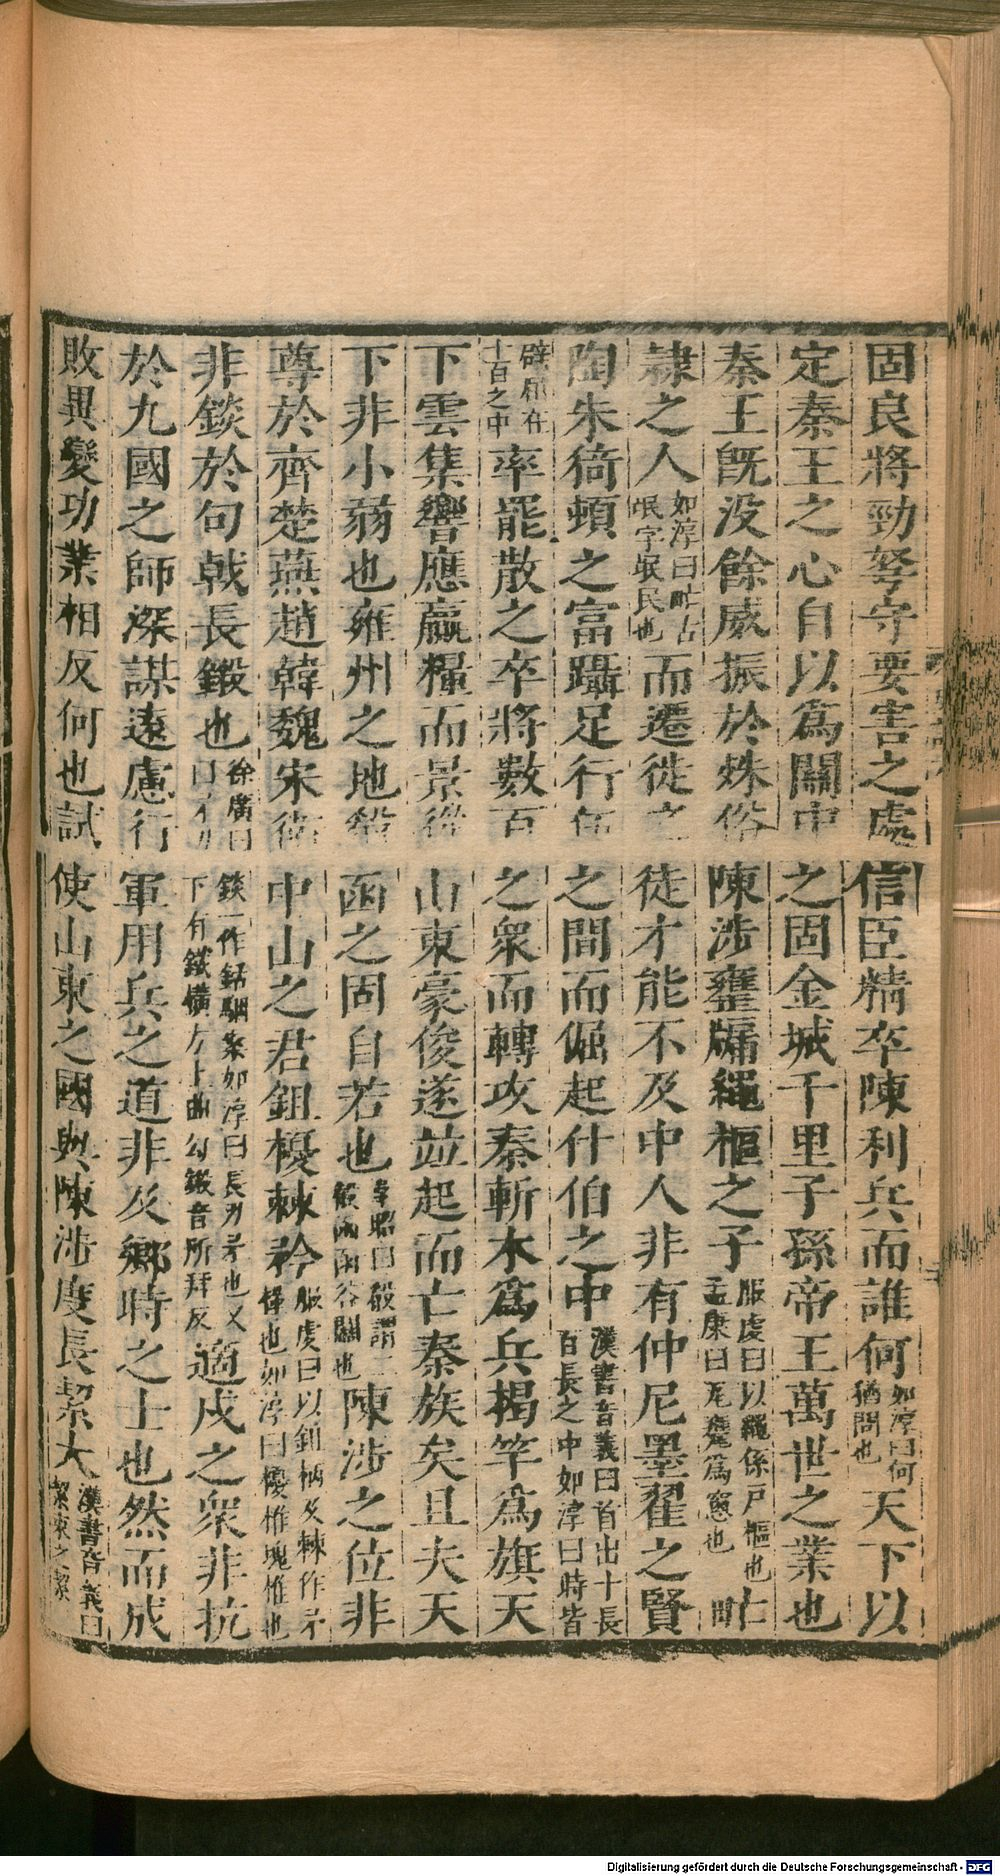 固良將勁弩守要害之處信臣精卒陳利兵而誰何如淳曰何猶問也天下以
定秦王之心自以爲關中之固金城千里子孫帝王萬世之業也
秦王旣没餘威振於殊俗陳涉甕牖繩樞之子服虔曰以繩係戶樞也孟康曰瓦甕爲窻也
隸之人如淳曰甿古氓字氓民也而遷徙之徒才能不及中人非有仲尼墨翟之賢
陶朱猗頓之富躡足行伍之間而倔起什伯之中漢書音義曰首出十長百長之中如淳曰時皆
辟屈在十百之中率罷散之卒將數百之衆而轉攻秦斬木爲兵揭竿爲旗天
下雲集響應贏糧而景從山東豪俊遂並起而亡秦族矣且夫天
下非小弱也雍州之地殽函之固自若也韋昭曰殽謂二殽函函谷關也陳涉之位非
尊於齊楚燕趙韓魏宋衛中山之君鉏櫌棘矜服虔曰以鉏柄及棘作矛㦸也如淳曰櫌椎塊椎也
非錟於句戟長鎩也徐廣曰錟一作銛駰案如淳曰長刃矛也又曰下有鐵橫方上曲勾鎩音所拜反適戍之衆非抗
於九國之師深謀遠慮行軍用兵之道非及鄉時之士也然而成
敗異變功業相反何也試使山東之國與陳涉度長絜大漢書音義曰絜束之絜
Digitalisierung gefördert durch die Deutsche Forschungsgemeinschaft - DFG